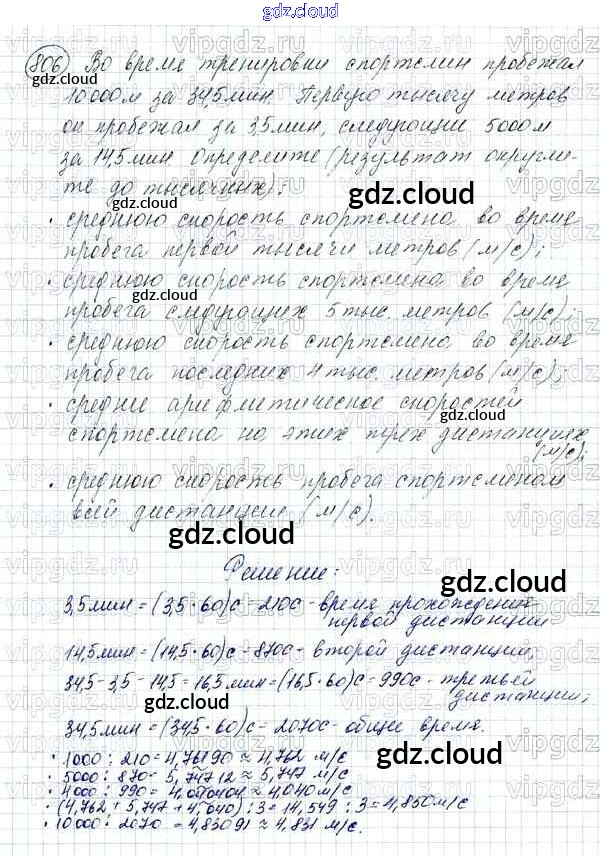 gdz.cloud
806) Во время тренировки спортсмен пробежал
10 000м за 34,5мин. Первую тысячу метров
он пробежал за 3,5мин, следующие 5000м
за 14,5мин. Определите (результат округли-
те до тысячных):
· среднюю скорость спортсмена во время
пробега первой тысячи метров (м/с);
· среднюю скорость спортсмена во время
пробега следующих 5 тыс. метров (м/с);
· среднюю скорость спортсмена во время
пробега последних 4 тыс. метров (м/с);
· средние арифметическое скоростей
спортсмена на этих трех дистанциях
(м/с);
· среднюю скорость пробега спортсменом
всей дистанции (м/с).
Решение:
3,5мин = (3,5·60)с = 210с - время прохождения
первой дистанции
14,5мин = (14,5·60)с = 870с - второй дистанции;
34,5 - 3,5 - 14,5 = 16,5мин = (16,5·60)с = 990с - третьей
дистанции;
34,5мин = (34,5·60)с = 2070с - общее время.
· 1000 : 210 = 4,76190 ≈ 4,762 м/с
· 5000 : 870 = 5,74712 ≈ 5,747 м/с
· 4000 : 990 = 4,040404 ≈ 4,040м/с
· (4,762 + 5,747 + 4,040) : 3 = 14,549 : 3 = 4,850м/с
· 10 000 : 2070 = 4,83091 ≈ 4,831 м/с.